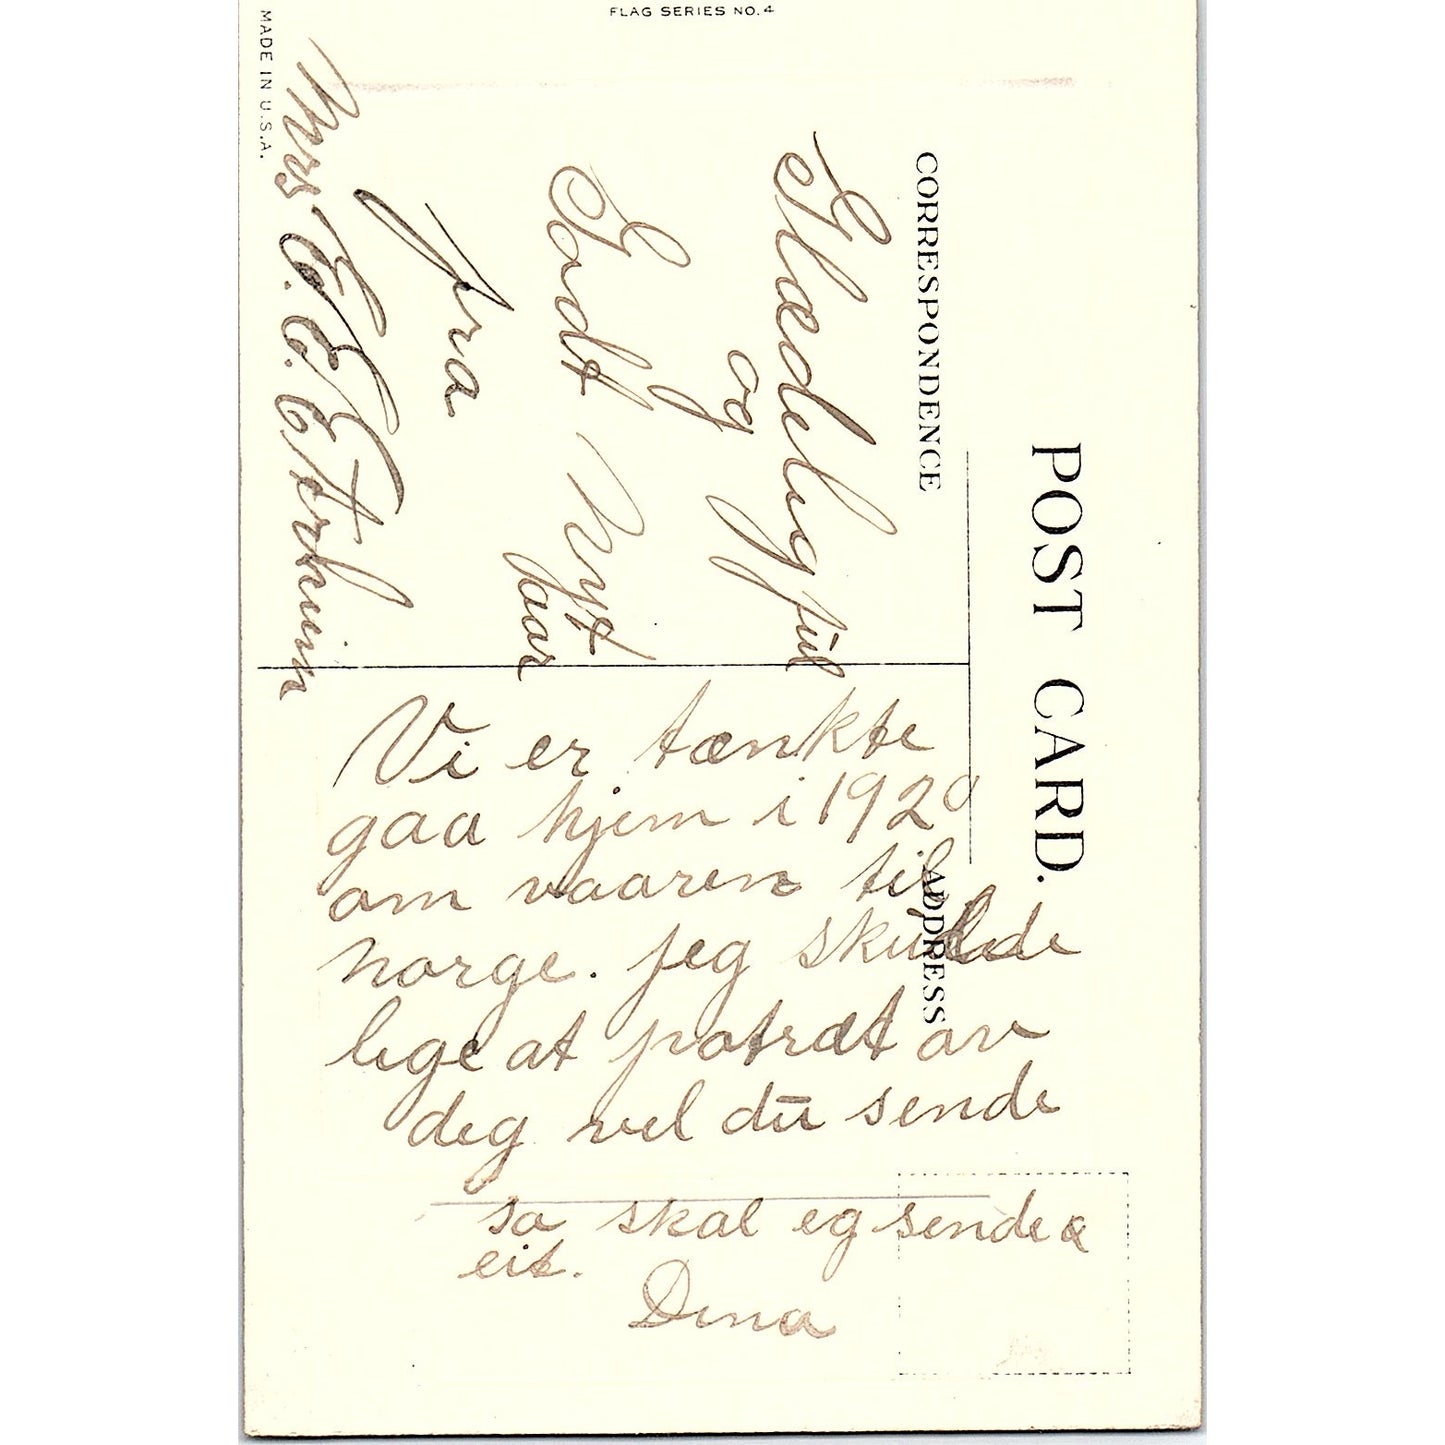 FLAG SERIES NO. 4
MADE IN U.S.A.
POST CARD.
CORRESPONDENCE
ADDRESS
Glædelig jul
og
Godt Nyt
jaar
fra
Mrs E. E.
Vi er tænkte
gaa hjem i 1920
om vaaren til
norge. jeg skulde
lige at potræt av
deg vel du sende
sa skal eg sende
eit.
Dina